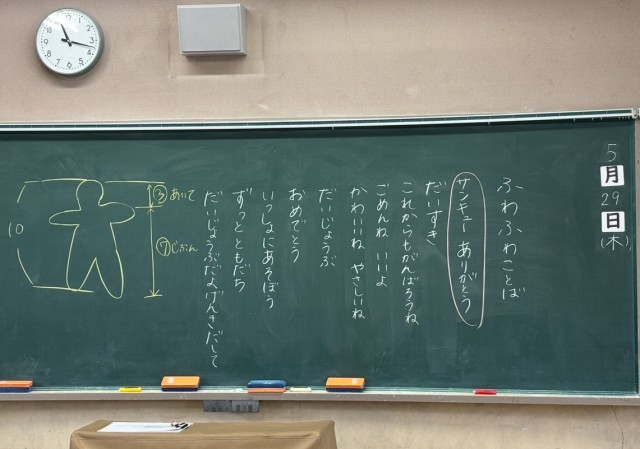 5月29日(木)
ふわふわことば
サンキュー ありがとう
だいすき
これからもがんばろうね
ごめんね いいよ
かわいいね やさしいね
だいじょうぶ
おめでとう
いっしょにあそぼう
ずっとともだち
だいじょうぶだよげんきだして
③あいて
⑦じぶん
10
12
1
2
3
4
5
6
7
8
9
10
11